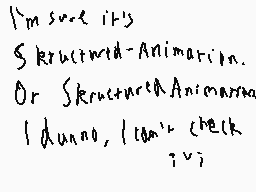 I'm sure it's
Skructured-Animation.
Or SkructuredAnimation
I dunno, I can't check
;v;